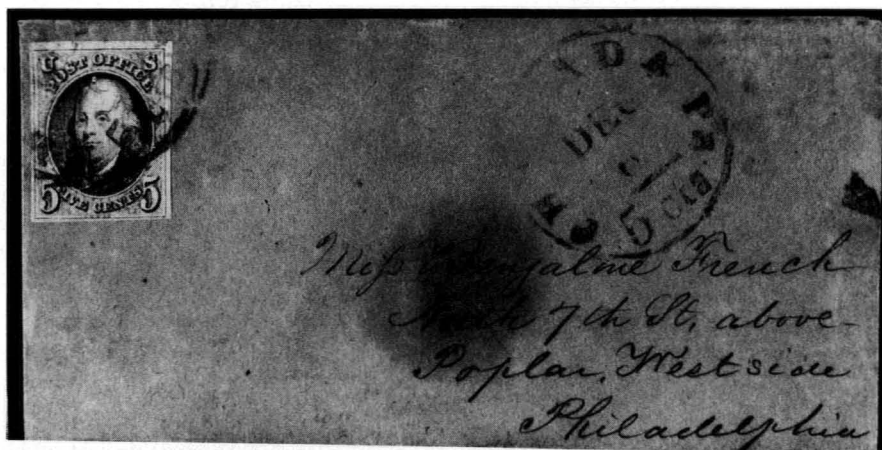 U S
POST OFFICE
FIVE CENTS
5 5
IDA Pa.
DEC
5 cts
Miss French
North 7th St. above
Poplar, West side
Philadelphia